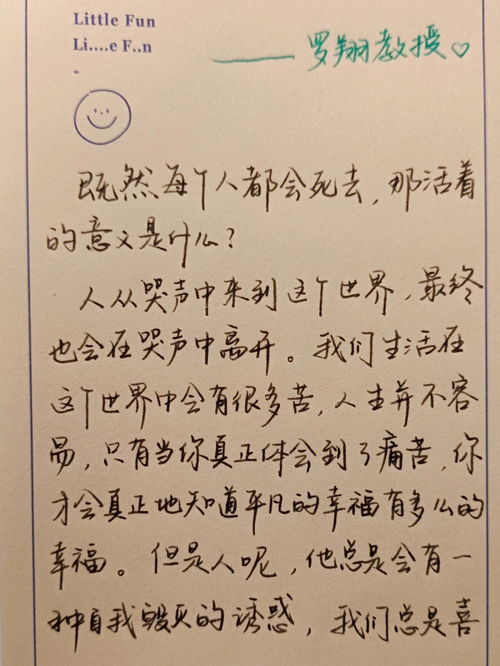 Little Fun
Li....e F..n
-
——罗翔教授♡
既然每个人都会死去，那活着
的意义是什么？
人从哭声中来到这个世界，最终
也会在哭声中离开。我们生活在
这个世界中会有很多苦，人生并不容
易，只有当你真正体会到了痛苦，你
才会真正地知道平凡的幸福有多么的
幸福。但是人呢，他总是会有一
种自我毁灭的诱惑，我们总是喜